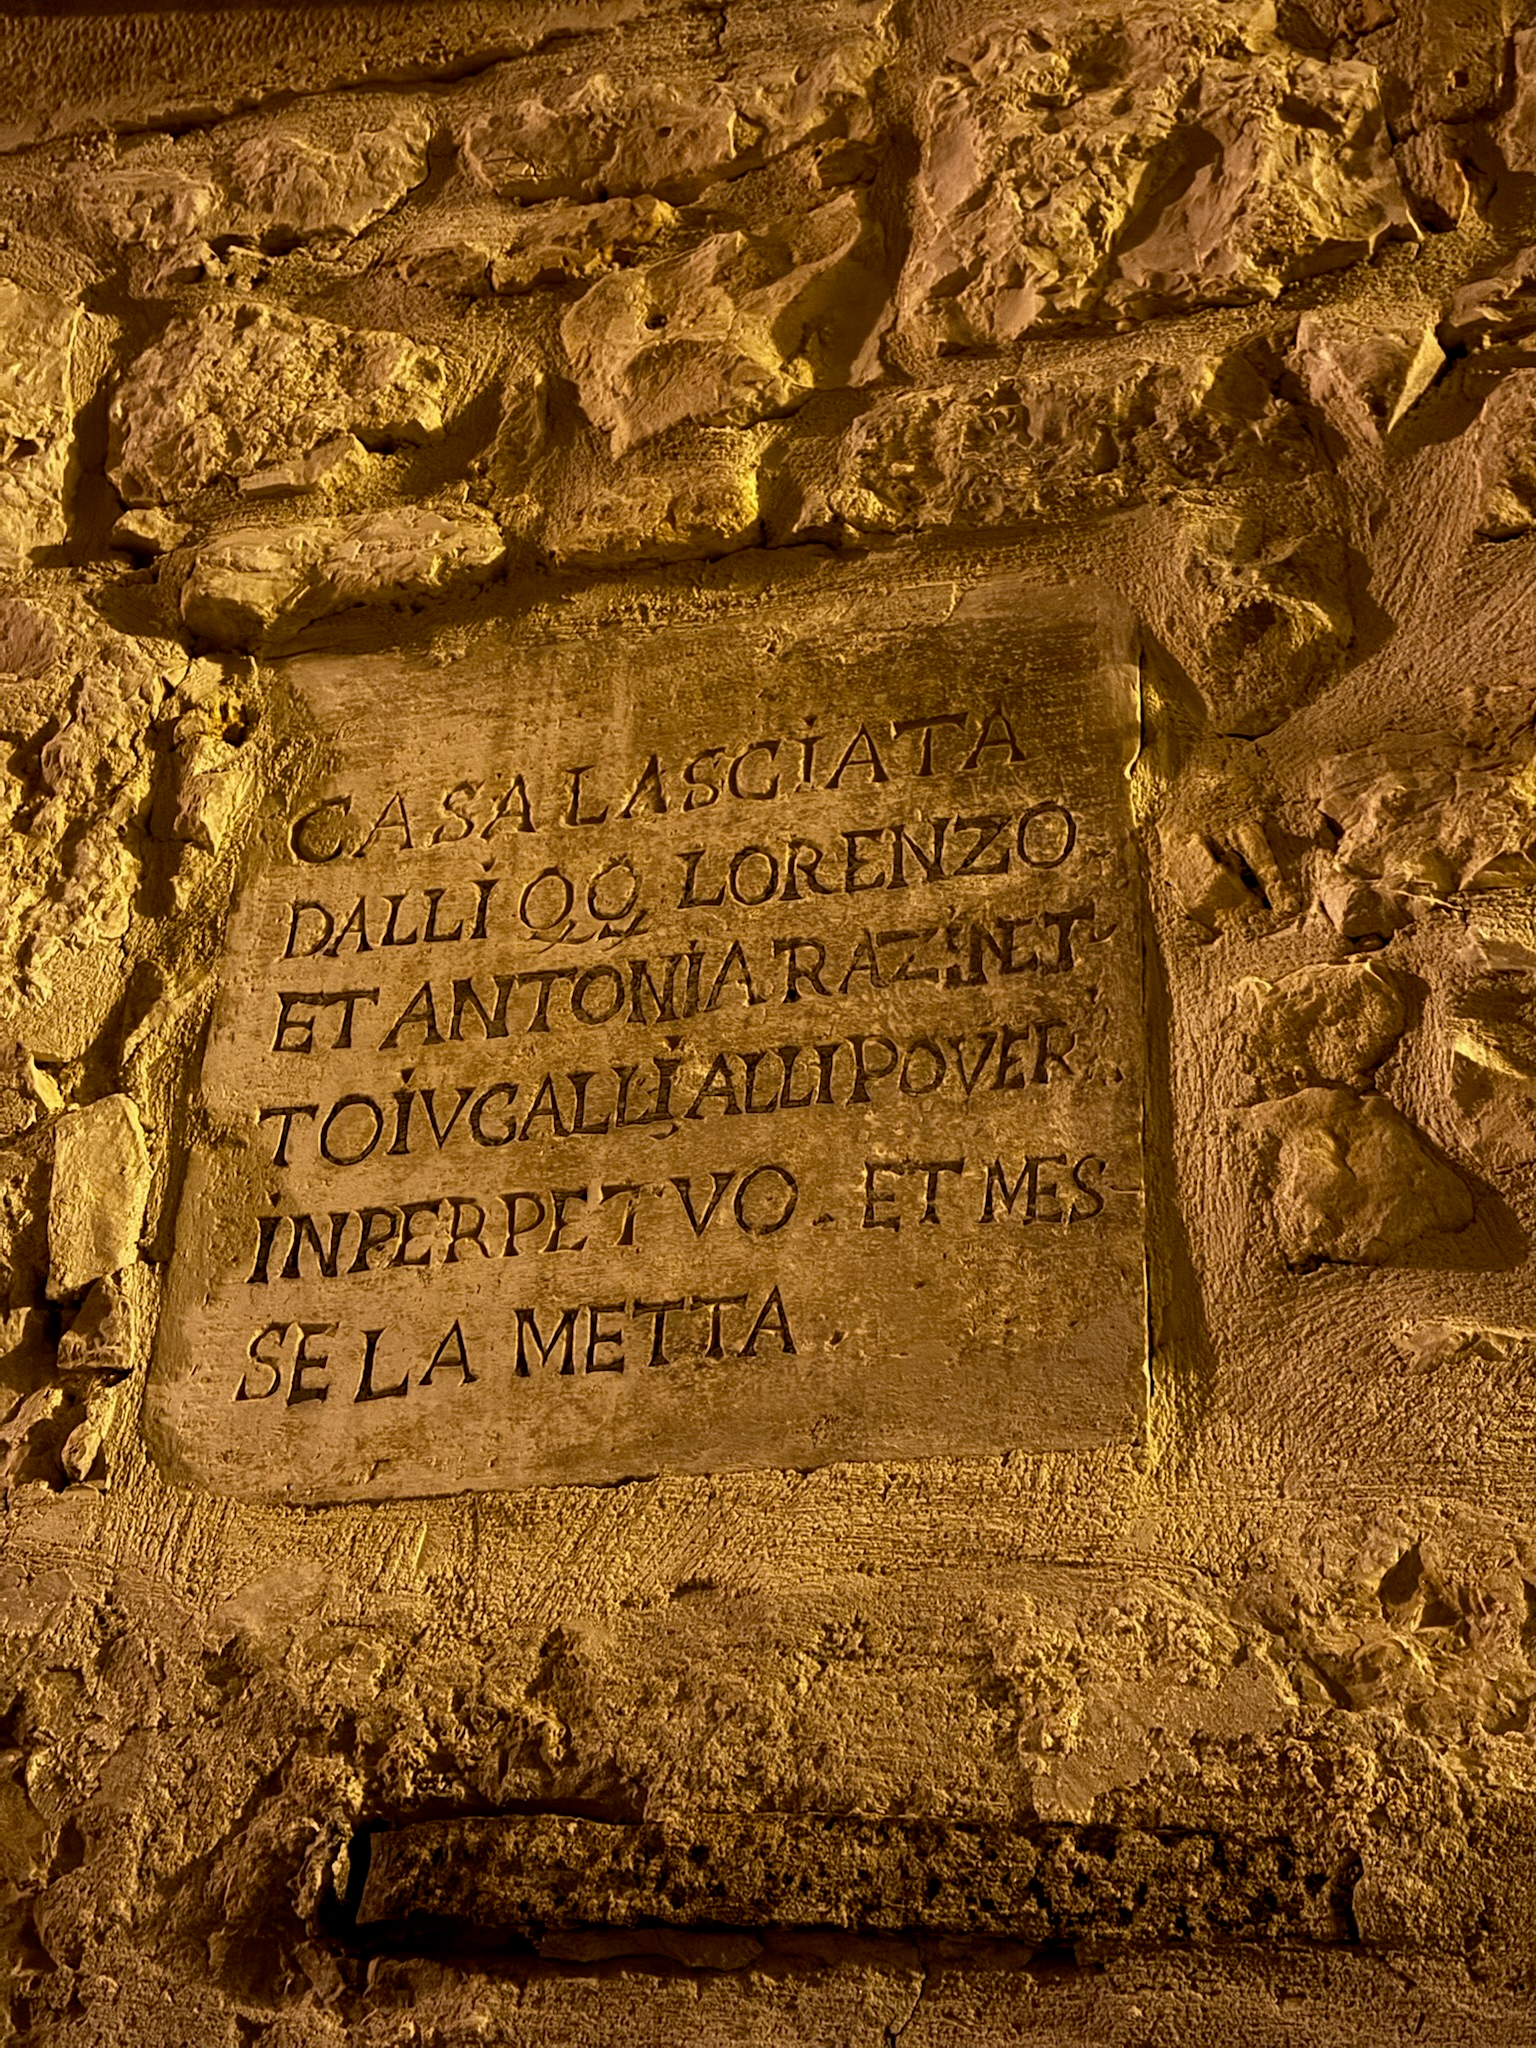 CASA LASCIATA
DALLI QQ LORENZO
ET ANTONIA RAZI NET
TOIVGALLI ALLI POVER
IN PERPETVO. ET MES
SE LA METTA.